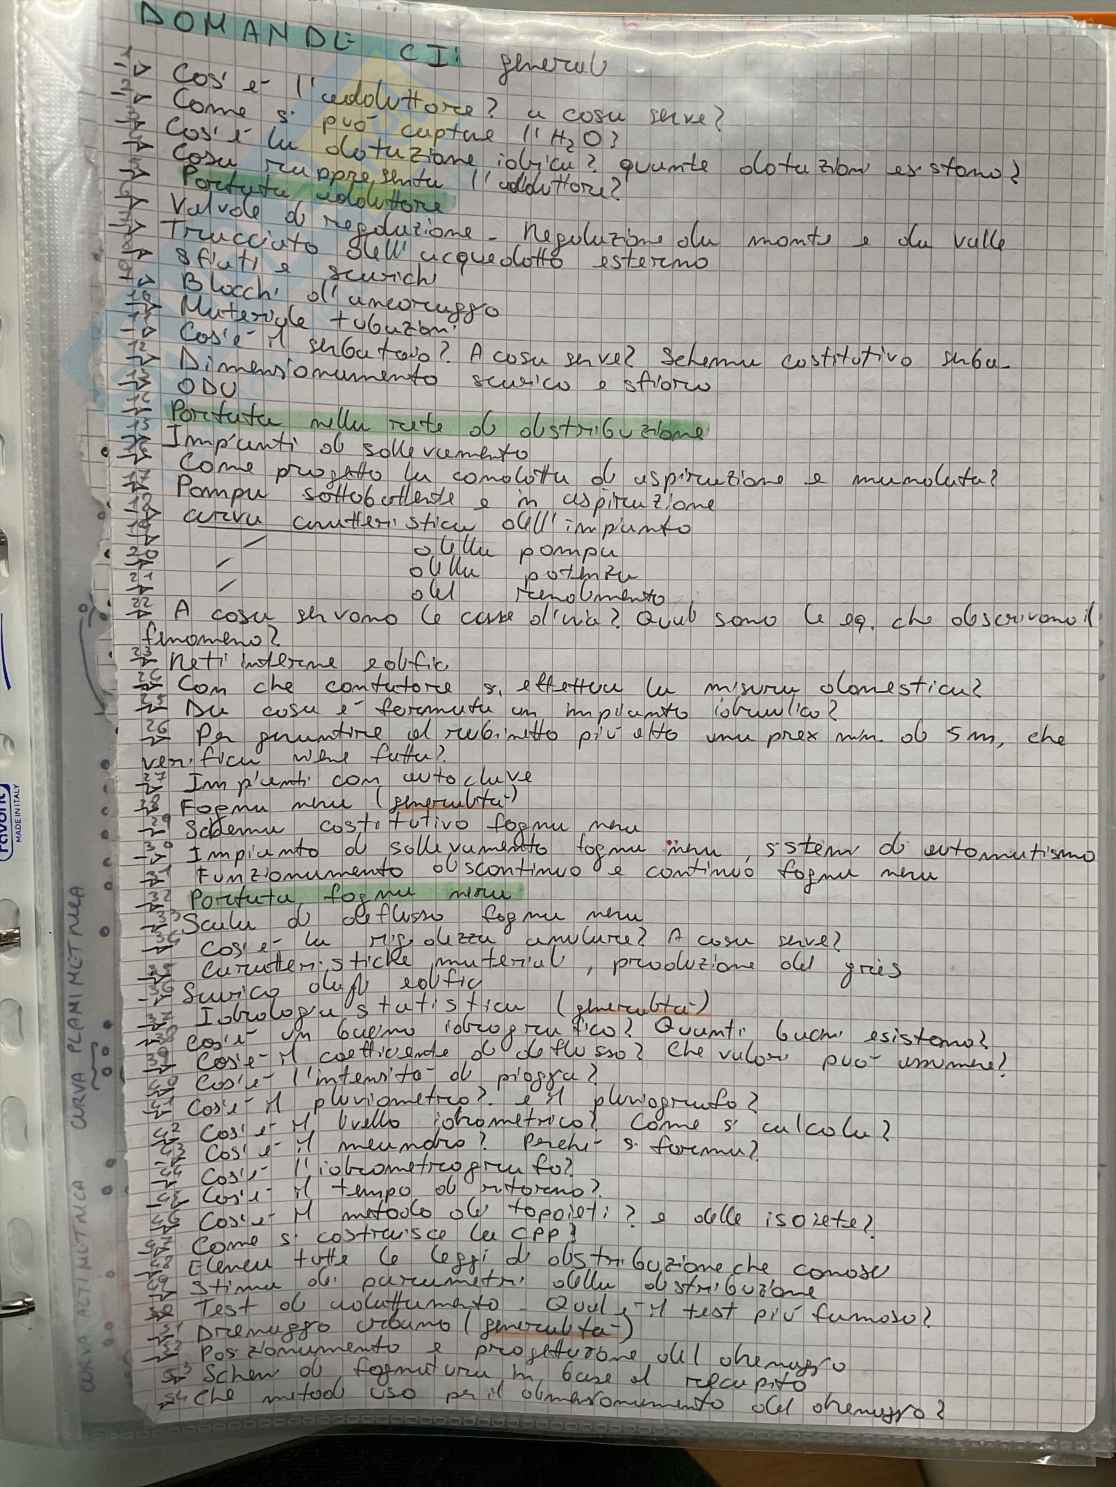 DOMANDE CI: generali
1 Cos'è l'adduttore? a cosa serve?
2 Come si può captare l'H2O?
3 Cos'è la dotazione idrica? quante dotazioni esistono?
4 Cosa rappresenta l'adduttore?
5 Portata adduttore
6 Valvole di regolazione - Regolazione da monte e da valle
7 Tracciato dell'acquedotto esterno
8 Sfiati e scarichi
9 Blocchi d'ancoraggio
10 Materiale tubazioni
11 Cos'è il serbatoio? A cosa serve? Schema costitutivo serba-
12 Dimensionamento scarico e sfioro
13 ODU
14 Portata nella rete di distribuzione
15 Impianti di sollevamento
16 Come progetto la condotta di aspirazione e mandata?
17 Pompa sottobattente e in aspirazione
18 curva caratteristica dell'impianto
19 " della pompa
20 " della potenza
21 " del rendimento
22 A cosa servono le casse d'aria? Quali sono le eq. che descrivono il
fenomeno?
23 Reti interne edifici
24 Con che contatore si effettua la misura domestica?
25 Da cosa è formata un impianto idraulico?
26 Per garantire al rubinetto più alto una prex min. di 5 m, che
verifica viene fatta?
27 Impianti con autoclave
28 Fogna nera (generalità)
29 Schema costitutivo fogna nera
30 Impianto di sollevamento fogna nera, sistemi di automatismo
31 Funzionamento discontinuo e continuo fogna nera
32 Portata fogna nera
33 Scala di deflusso fogna nera
34 Cos'è la rigidezza anulare? A cosa serve?
35 Caratteristiche materiali, produzione del grès
36 Scarico degli edifici
37 Idrologia statistica (generalità)
38 Cos'è un bacino idrografico? Quanti bacini esistono?
39 Cos'è il coefficiente di deflusso? Che valori può assumere?
40 Cos'è l'intensità di pioggia?
41 Cos'è il pluviometrico? e il pluviografo?
42 Cos'è il livello idrometrico? Come si calcola?
43 Cos'è il meandro? Perchè si forma?
44 Cos'è l'idrometrografo?
45 Cos'è il tempo di ritorno?
46 Cos'è il metodo dei topoieti? e delle isoiete?
47 Come si costruisce la CPP?
48 Elenca tutte le leggi di distribuzione che conosci
49 Stima dei parametri della distribuzione
50 Test di adattamento - Qual è il test più famoso?
51 Drenaggio urbano (generalità)
52 Posizionamento e progettazione del drenaggio
53 Schemi di fognatura in base al recapito
54 Che metodi uso per il dimensionamento del drenaggio?
CURVA PLANIMETRICA
CURVA ALTIMETRICA
Favorit
MADE IN ITALY